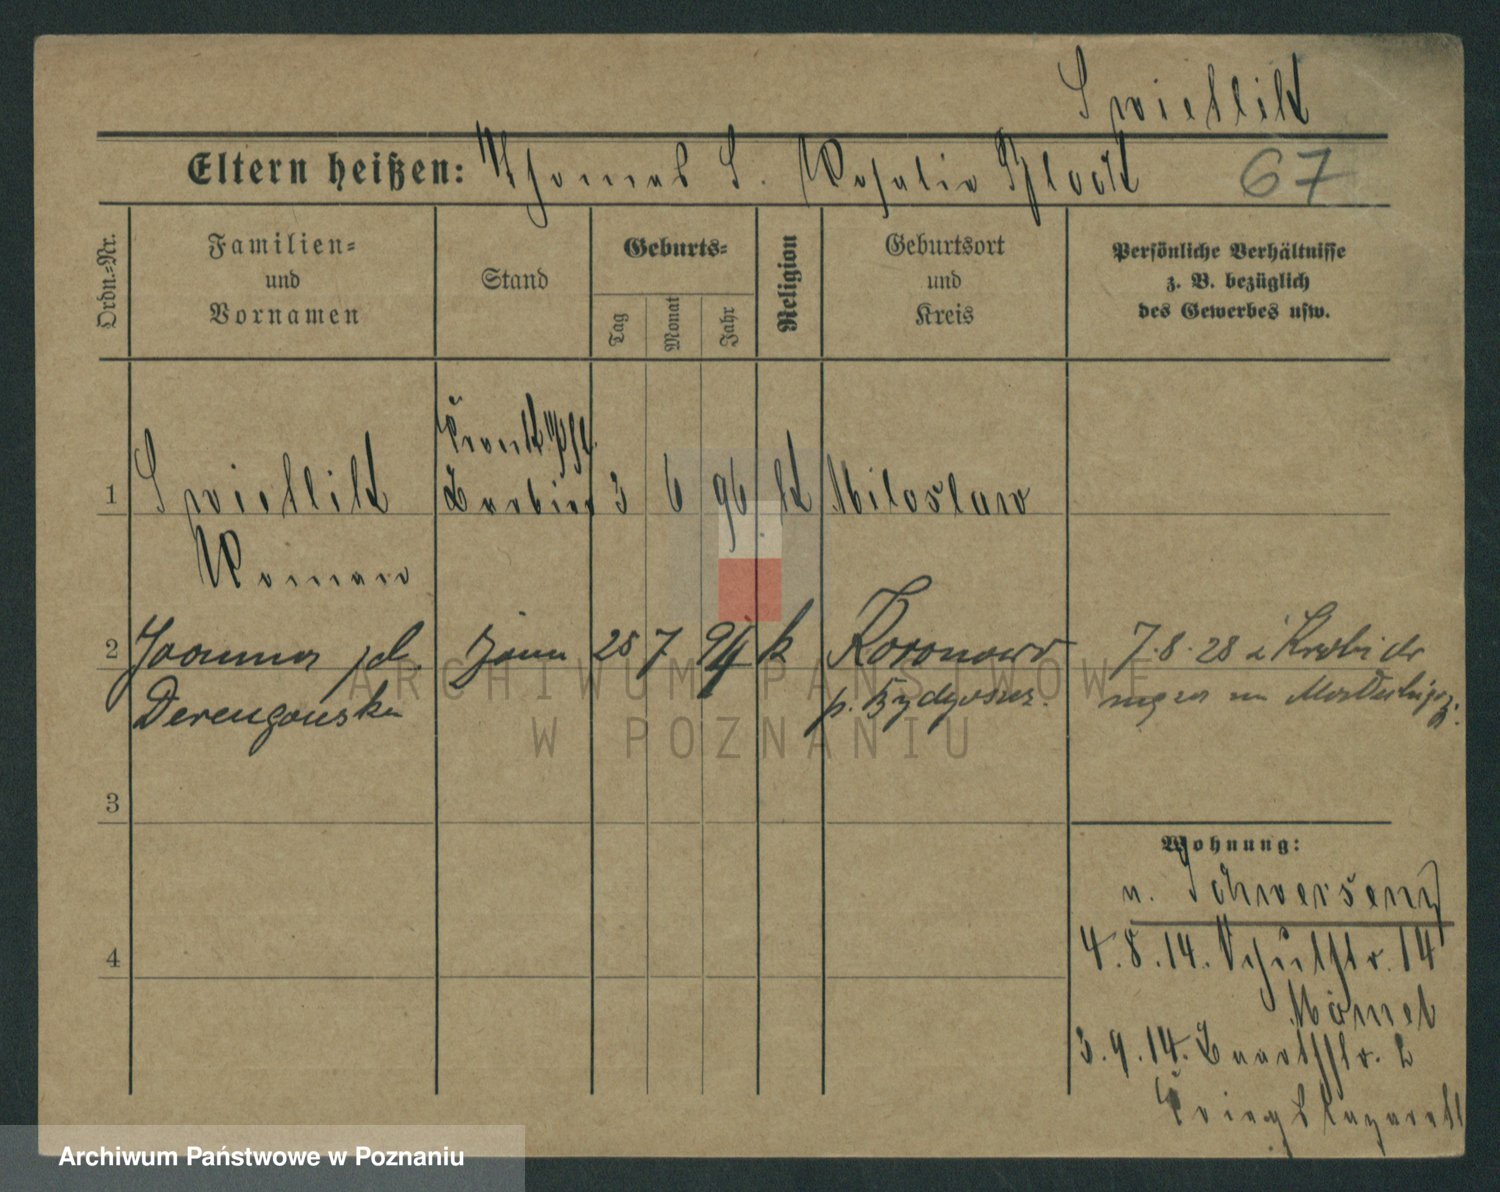 Swietlik
Eltern heißen: Thomas S. Rosalie Block 67
Ordn.=Nr.
Familien=
und
Vornamen
Stand
Geburts=
Tag
Monat
Jahr
Religion
Geburtsort
und
Kreis
Persönliche Verhältnisse
z. B. bezüglich
des Gewerbes usw.
1 Swietlik
Roman
Barbier 3 6 96. k Miloslaw
2 Joanna
żona 25 7 94 k Koronowo
p. Bydgoszcz.
7.8.28
3
4
Wohnung:
n. Schwersenz
4.8.14. Schulstr. 14
3.9.14.
Kriegslazarett
ARCHIWUM PAŃSTWOWE
W POZNANIU
Archiwum Państwowe w Poznaniu